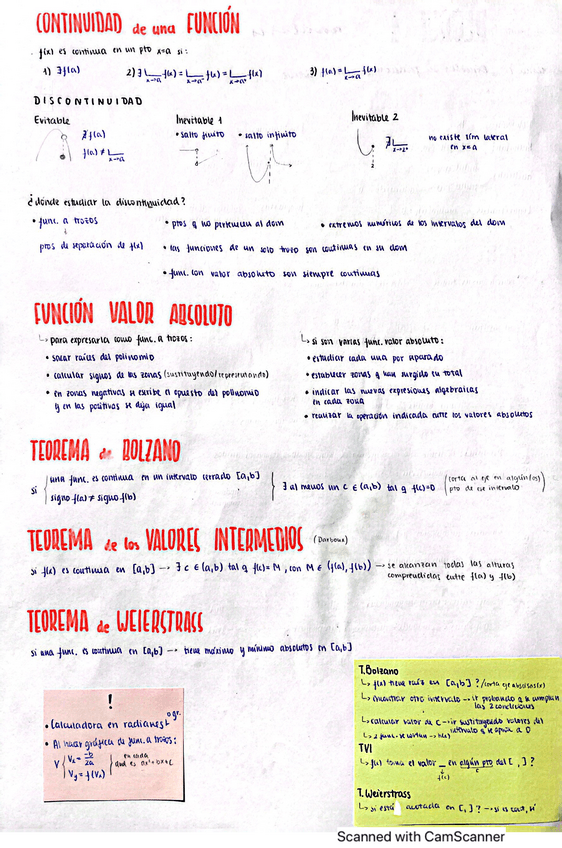 CONTINUIDAD de una FUNCIÓN
. f(x) es continua en un pto x=a si:
1) ∃f(a)
2) ∃ L x→a f(x) = L x→a⁻ f(x) = L x→a⁺ f(x)
3) f(a) = L x→a f(x)
DISCONTINUIDAD
Evitable
Inevitable 1
Inevitable 2
∄f(a)
f(a) ≠ L x→a
• salto finito
• salto infinito
∄ L x→2⁺
no existe lím lateral
en x=a
¿dónde estudiar la discontinuidad?
• func. a trozos
↓
ptos de separación de f(x)
• ptos q no pertenecen al dom
• extremos numéricos de los intervalos del dom
• las funciones de un solo trozo son continuas en su dom
• func. con valor absoluto son siempre continuas
FUNCIÓN VALOR ABSOLUTO
↳ para expresarla como func. a trozos:
• sacar raíces del polinomio
• calcular signos de las zonas (sustituyendo/representando)
• en zonas negativas se escribe el opuesto del polinomio
y en las positivas se deja igual
↳ si son varias func. valor absoluto:
• estudiar cada una por separado
• establecer zonas q han surgido en total
• indicar las nuevas expresiones algebraicas
en cada zona
• realizar la operación indicada entre los valores absolutos
TEOREMA de BOLZANO
si
una func. es continua en un intervalo cerrado [a,b]
signo f(a) ≠ signo f(b)
∃ al menos un c ∈ (a,b) tal q f(c)=0
(corta al eje en algún(os)
pto de ese intervalo)
TEOREMA de los VALORES INTERMEDIOS (Darboux)
si f(x) es continua en [a,b] → ∃ c ∈ (a,b) tal q f(c)=M, con M ∈ (f(a), f(b)) → se alcanzan todas las alturas
comprendidas entre f(a) y f(b)
TEOREMA de WEIERSTRASS
si una func. es continua en [a,b] → tiene máximo y mínimo absolutos en [a,b]
!
• Calculadora en radianes
• Al hacer gráfica de func. a trozos:
V { Vx = -b/2a
Vy = f(Vx)
en cada
una es ax²+bx+c
T. Bolzano
↳ f(x) tiene raíz en [a,b]? /corta eje abscisas(x)
↳ encontrar otro intervalo → ir probando q se cumplan
las 2 condiciones
↳ calcular valor de c → ir sustituyendo valores del
intervalo q se aprox. a 0
↳ 2 func. se cortan → h(x)
TVI
↳ f(x) toma el valor _ en algún pto del [ , ]?
f(c) c
T. Weierstrass
↳ si está acotada en [ , ]? → si es cont, sí
Scanned with CamScanner